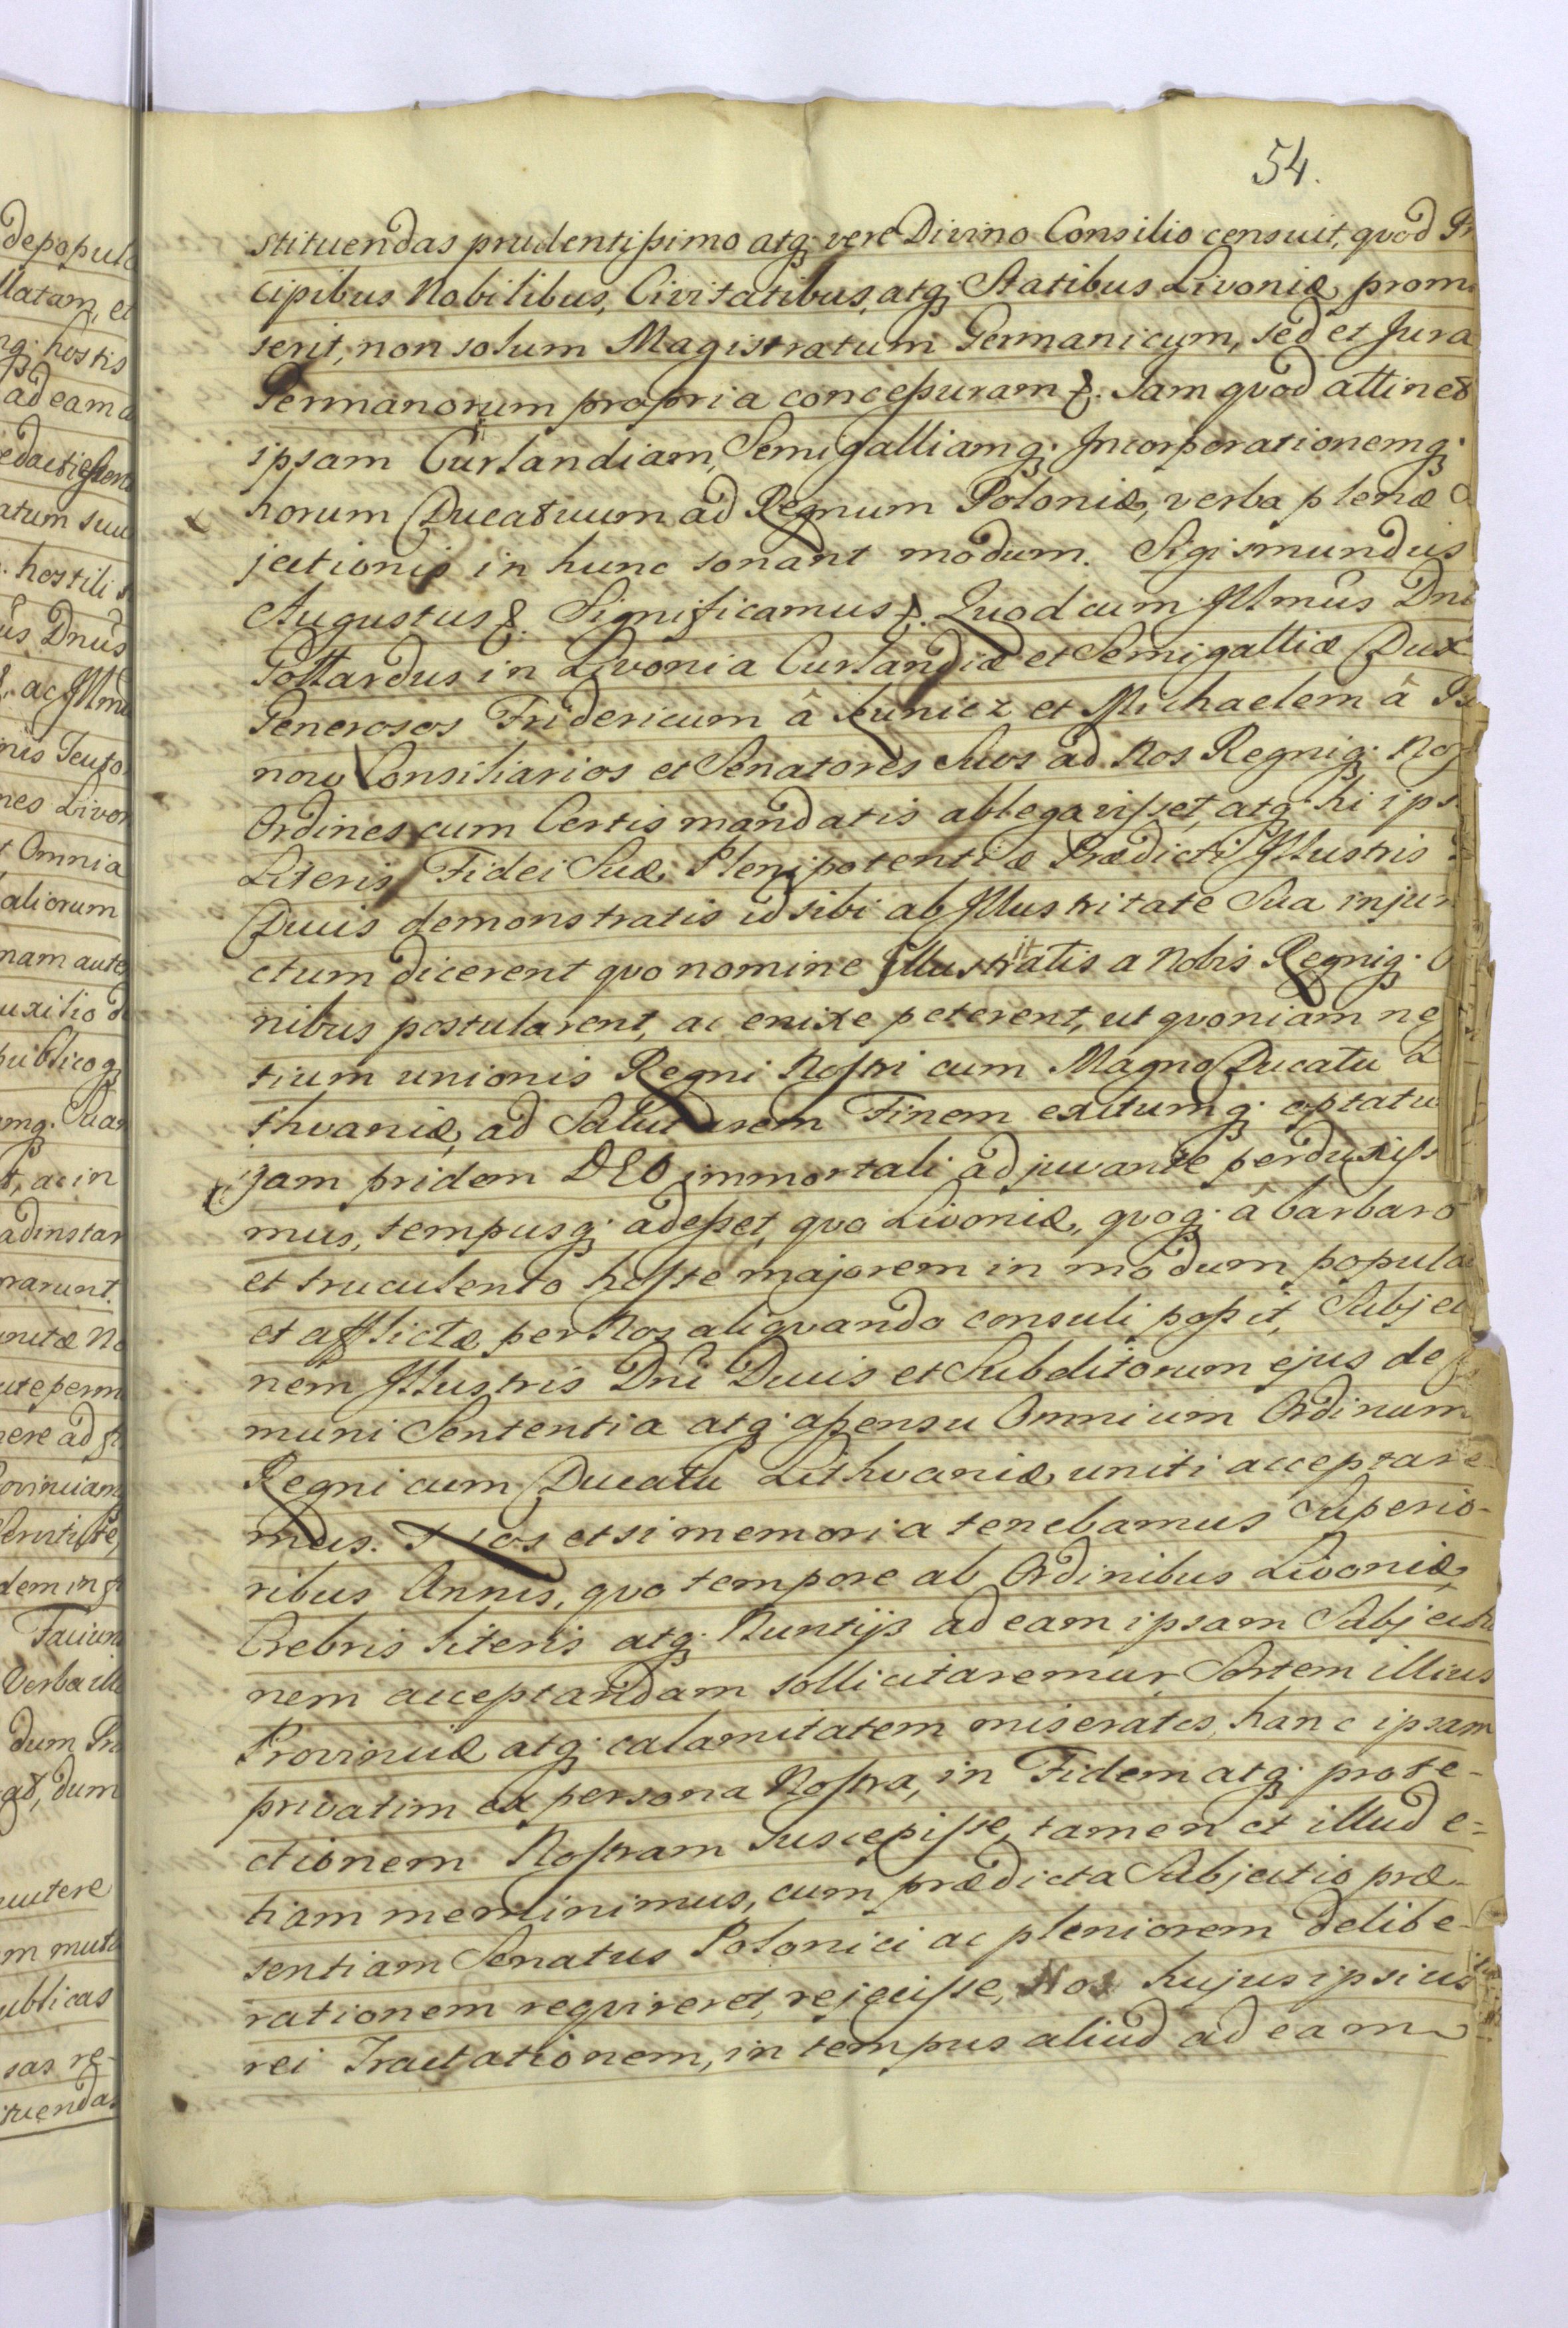 54.
stituendas prudentissimo atq; vere Divino Consilio censuit, qvod
cipibus Nobilibus, Civitatibus, atq; Statibus Livoniæ, prom
serit, non solum Magistratum Germanicum, sed et Jura
Germanorum propria concessuram &. Jam qvod attinet
ipsam Curlandiam, Semigalliamq; Incorporationemq;
horum Ducatuum ad Regnum Poloniæ, verba plenæ
jectionis in hunc sonant modum. Sigismundus
Augustus &. Significamus &. Quod cum Illmûs Dnû
Gottardus in Livonia Curlandiæ et Semigalliæ Dux
Generosos Fridericum â Kuniez et Michaelem â
now Consiliarios et Senatores Suos ad Nos Regniq; Nos
Ordines cum Certis mandatis ablegavisset, atq; hi ips
Literis Fidei Suæ, Plenipotentiæ Prædicti Illustris
Ducis demonstratis id sibi ab Illustritate Sua injun
ctum dicerent qvo nomine Illustritatis a Nobis Regniq; O
nibus postularent, ac enixe peterent, ut qvoniam neg
tium unionis Regni Nostri cum Magno Ducatu Li
thvaniæ, ad Salutarem Finem exitumq; optatu
jam pridem DEO immortali adjuvante perduxiss
mus, tempusq; adesset, qvo Livoniæ, qvoq; â barbaro
et truculento hoste majorem in modum popula
et afflictæ, per Nos aliqvando consuli possit, Subjec
nem Illustris Dnî Ducis et Subditorum ejus de
muni Sententia atq; assensu Omnium Ordinum
Regni cum Ducatu Lithvaniæ, uniti acceptare
mus. Nos etsi memoria tenebamus Superio-
ribus Annis, qvo tempore ab Ordinibus Livoniæ,
Crebris literis atq; Nuntijs ad eam ipsam Subjectio
nem acceptandam sollicitaremur, Sortem illius
Provinciæ atq; calamitatem miseratos, hanc ipsam
privatim ex persona Nostra, in Fidem atq; prote-
ctionem Nostram suscepisse, tamen et illud e=
tiam meminimus, cum prædicta Subjectio præ-
sentiam Senatus Polonici ac pleniorem delibe-
rationem reqvireret, rejecisse, Nos hujus ipsius
rei Tractationem, in tempus aliud ad eam
depopula
llatam, et
hostis
ad eam a
atum suu
hostili
ûs Dnûs
&. ac Illmû
nis Teuto
nes Livon
t Omnia
aliorum
nam aute
uxilio d
publicoq;
emq; Suam
t, ac in
ad instar
rarunt.
ere ad
ovinciam
dem in
Faciunt
Verba illa
dum Pr
gat, dum
cutere
m mut
ublicas
sas re-
ituendas